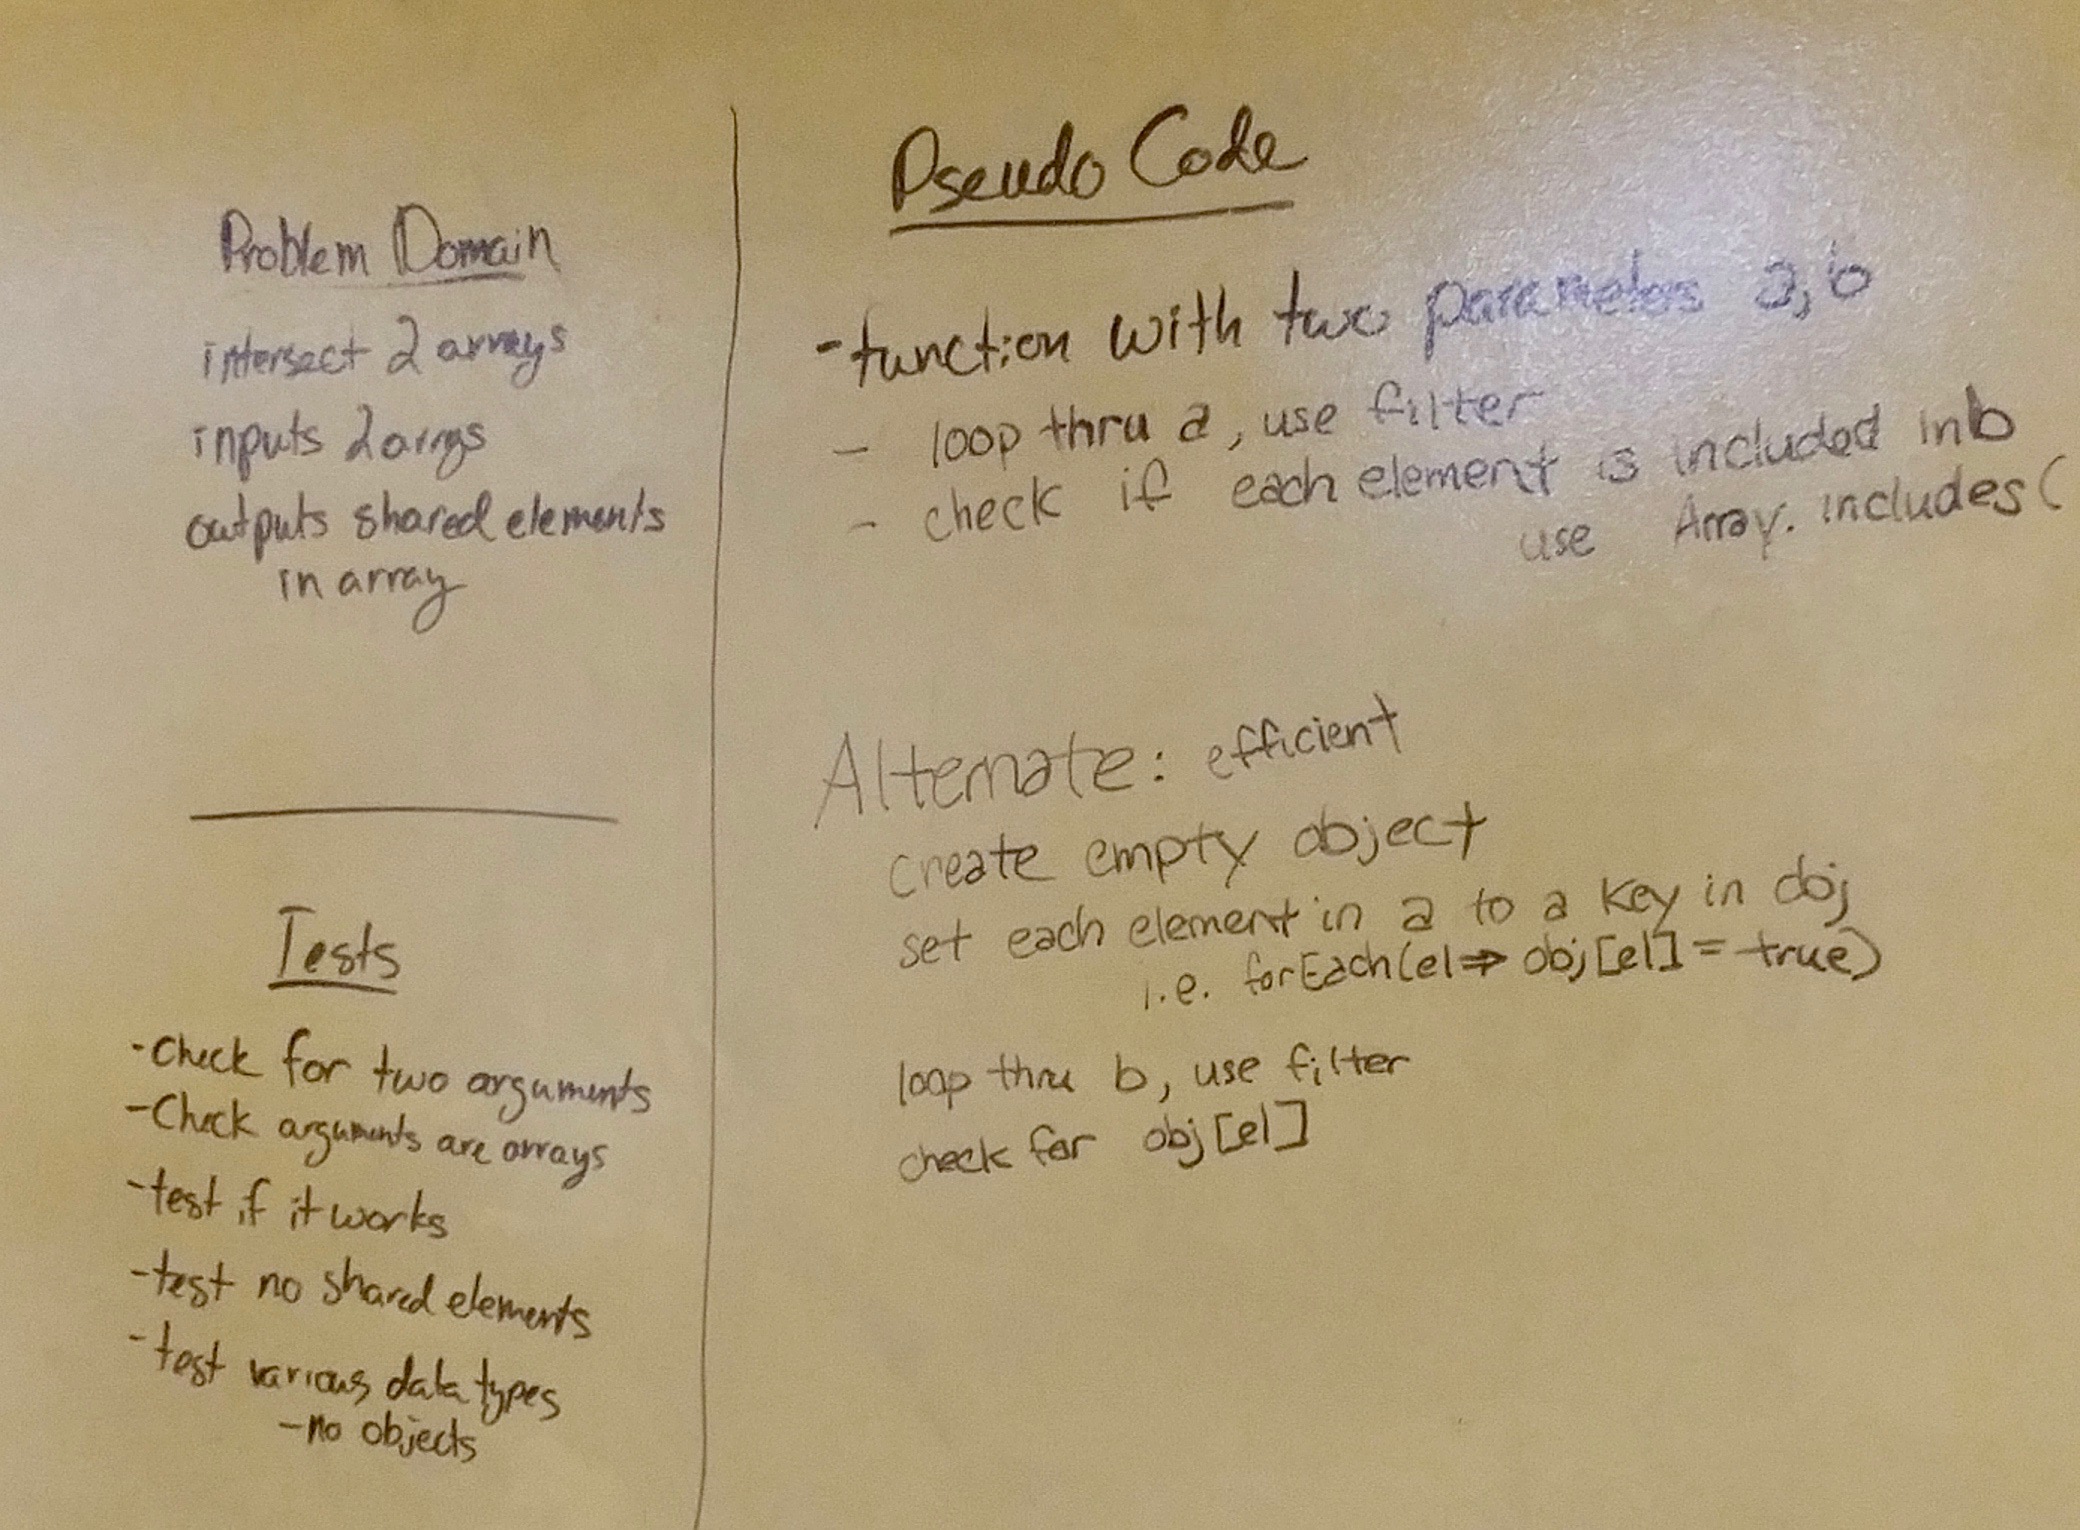 Problem Domain
intersect 2 arrays
inputs 2 arrys
outputs shared elements
in array
Tests
-Check for two arguments
-Check arguments are arrays
-test if it works
-test no shared elements
-test various data types
-no objects
Pseudo Code
-function with two parameters a, b
- loop thru a, use filter
- check if each element is included in b
use Array.includes(
Alternate: efficient
create empty object
set each element in a to a key in obj
i.e. forEach(el => obj[el] = true)
loop thru b, use filter
check for obj[el]